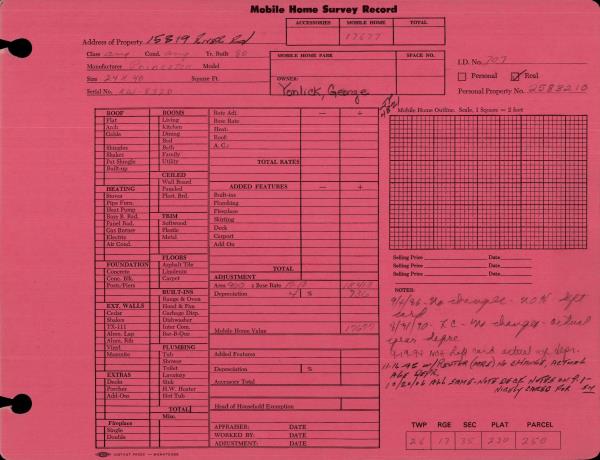 Mobile Home Survey Record
ACCESSORIES MOBILE HOME TOTAL
17677
Address of Property 15819 River Rd
Class avg Cond. avg Yr. Built 80
Manufacturer Princeton Model
Size 24 x 40 Square Ft.
Serial No.
MOBILE HOME PARK SPACE NO.
OWNER:
Yonlick, George
I.D. No. 707
Personal Real
Personal Property No. 2583210
ROOF
Flat
Arch
Gable
Shingles
Shakes
Pat Shingle
Built-up
HEATING
Stoves
Pipe Furn.
Heat Pump
Base B. Rad.
Panel Rad.
Gas Burner
Electric
Air Cond.
FOUNDATION
Concrete
Conc. Blk.
Posts/Piers
EXT. WALLS
Cedar
Shakes
TX-111
Alum. Lap
Alum. Rib
Vinyl
Masonite
EXTRAS
Decks
Porches
Add-Ons
Fireplace
Single
Double
ROOMS
Living
Kitchen
Dining
Bed
Bath
Family
Utility
CEILED
Wall Board
Paneled
Plast. Brd.
TRIM
Softwood
Plastic
Metal
FLOORS
Asphalt Tile
Linoleum
Carpet
BUILT-INS
Range & Oven
Hood & Fan
Garbage Disp.
Dishwasher
Inter Com.
Bar-B-Que
PLUMBING
Tub
Shower
Toilet
Lavatory
Sink
H.W. Heater
Hot Tub
TOTAL
Misc.
Rate Adj. — +
Base Rate
Heat:
Roof:
A. C.:
TOTAL RATES
ADDED FEATURES — +
Built-ins
Plumbing
Fireplace
Skirting
Deck
Carport
Add On
TOTAL
ADJUSTMENT
Area 960 x Base Rate
Depreciation 4 %
Mobile Home Value 17677
Added Features
Depreciation %
Accessory Total
Head of Household Exemption
APPRAISER: DATE
WORKED BY: DATE
ADJUSTMENT: DATE
Mobile Home Outline. Scale, 1 Square = 2 feet
Selling Price Date
Selling Price Date
Selling Price Date
NOTES:
no changes - no
card
no changes - actual
year depre
card actual
NO CHANGE, ACTUAL
AGE DEPR.
10/20/06 ALL SAME - NOTE DECK NOTES ON
NICELY CARED FOR
TWP RGE SEC PLAT PARCEL
26 17 35 220 250